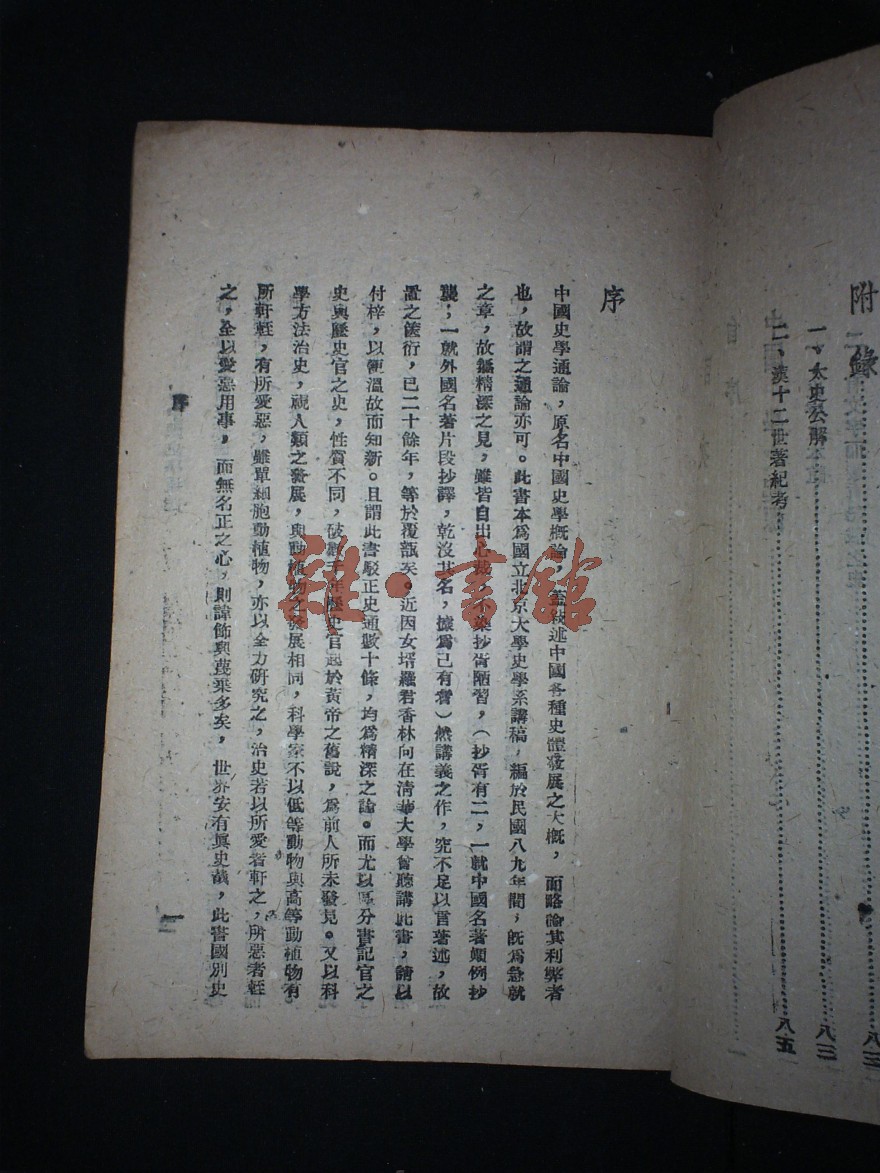 附錄
一、太史公解
八三
二、漢十二世著紀考
八五
序
中國史學通論，原名中國史學概論，蓋敍述中國各種史體發展之大概，而略論其利弊者
也，故謂之通論亦可。此書本爲國立北京大學史學系講稿，編於民國八九年間，旣爲急就
之章，故無精深之見，雖皆自出心裁，不染抄胥陋習，（抄胥有二，一就中國名著顛例抄
襲；一就外國名著片段抄譯，乾沒其名，據爲己有者）然講義之作，究不足以言著述，故
置之篋衍，已二十餘年，等於覆瓿矣。近因女壻羅君香林向在清華大學曾聽講此書，請以
付梓，以便溫故而知新。且謂此書駁正史通數十條，均爲精深之論。而尤以區分書記官之
史與歷史官之史，性質不同，破數千年歷史官起於黃帝之舊說，爲前人所未發見。又以科
學方法治史，視人類之發展，與動植物之發展相同，科學家不以低等動物與高等動植物有
所軒輊，有所愛惡，雖單細胞動植物，亦以全力研究之，治史若以所愛者軒之，所惡者輊
之，全以愛惡用事，而無名正之心，則諱飾與蔑棄多矣，世界安有眞史哉，此書國別史
序
一
雜·書館